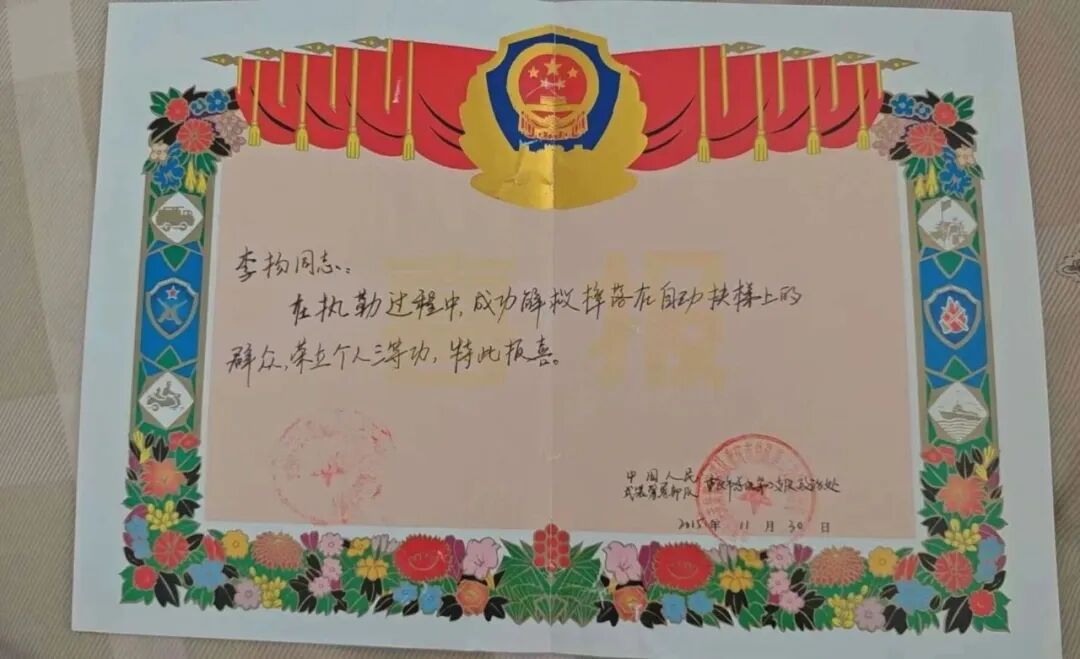 喜报
李扬同志：
在执勤过程中，成功解救掉落在自动扶梯上的
群众，荣立个人三等功，特此报喜。
中国人民
武装警察部队
支队政治处
2015年11月30日